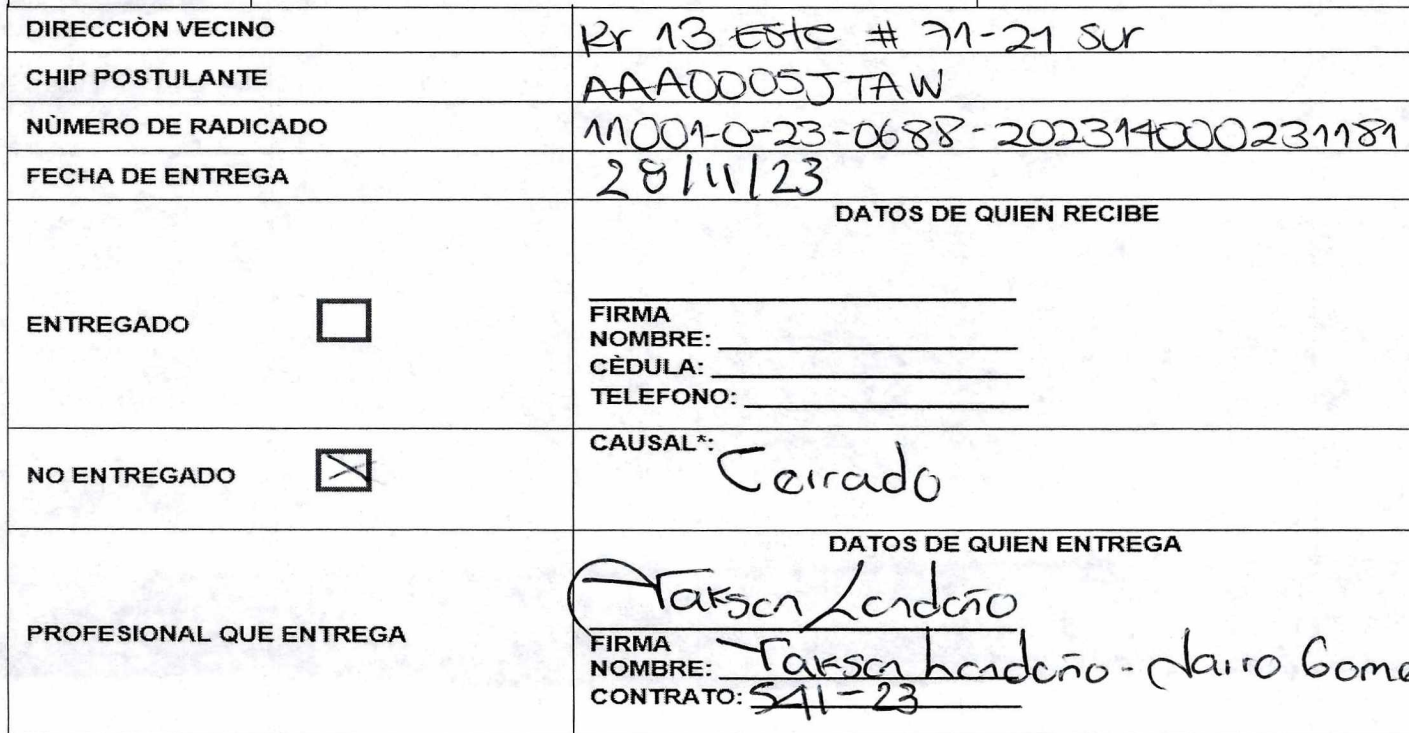 DIRECCIÒN VECINO Kr 13 Este # 71-21 Sur
CHIP POSTULANTE AAA0005JTAW
NÙMERO DE RADICADO 11001-0-23-0688-202314000231181
FECHA DE ENTREGA 28/11/23
DATOS DE QUIEN RECIBE
ENTREGADO
FIRMA
NOMBRE:
CÈDULA:
TELEFONO:
NO ENTREGADO
CAUSAL*: Cerrado
DATOS DE QUIEN ENTREGA
PROFESIONAL QUE ENTREGA
Londoño
FIRMA
NOMBRE: Londoño - Jairo Gome
CONTRATO: 541-23